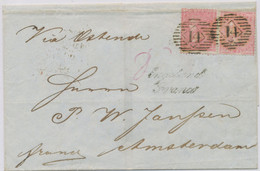 Via Ostende
14 14
England
Franco
Herrn
P. W. Janssen
franco Amsterdam